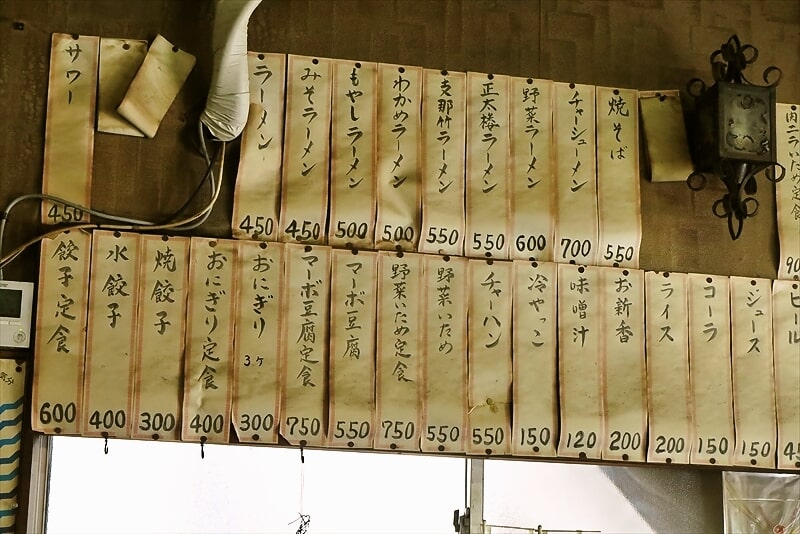 サワー 450
ラーメン 450
みそラーメン 450
もやしラーメン 500
わかめラーメン 500
支那竹ラーメン 550
正太楼ラーメン 550
野菜ラーメン 600
チャーシューメン 700
焼そば 550
肉ニラいため定食 90
餃子定食 600
水餃子 400
焼餃子 300
おにぎり定食 400
おにぎり 3ヶ 300
マーボ豆腐定食 750
マーボ豆腐 550
野菜いため定食 750
野菜いため 550
チャーハン 550
冷やっこ 150
味噌汁 120
お新香 200
ライス 200
コーラ 150
ジュース 150
ビール 45